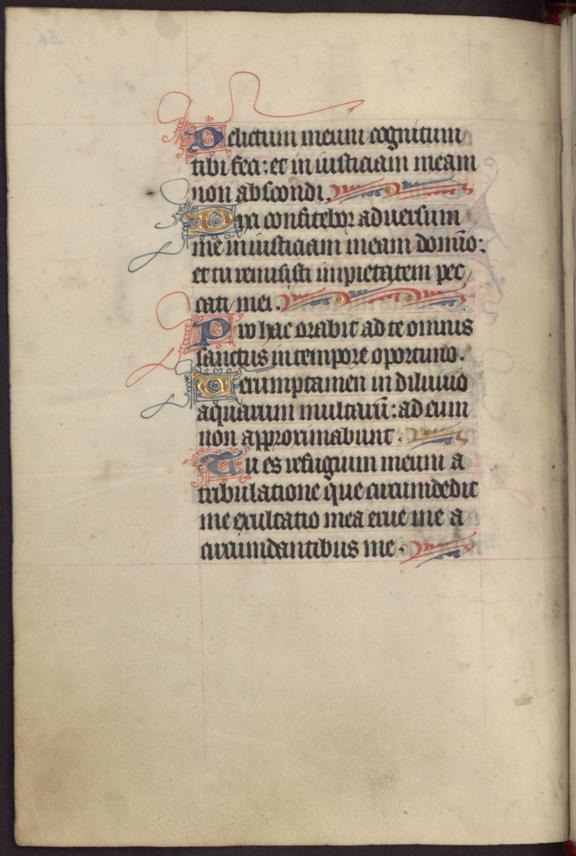 Delictum meum cognitum
tibi feci: et in iusticiam meam
non abscondi.
Dixi confitebor aduersum
me iniusticiam meam domino:
et tu remisisti impietatem pec
cati mei.
Pro hac orabit ad te omnis
sanctus in tempore oportuno.
Verumptamen in diluuio
aquarum multarū: ad eum
non approximabunt.
Tu es refugium meum a
tribulatione que circumdedit
me exultatio mea erue me a
circumdantibus me.